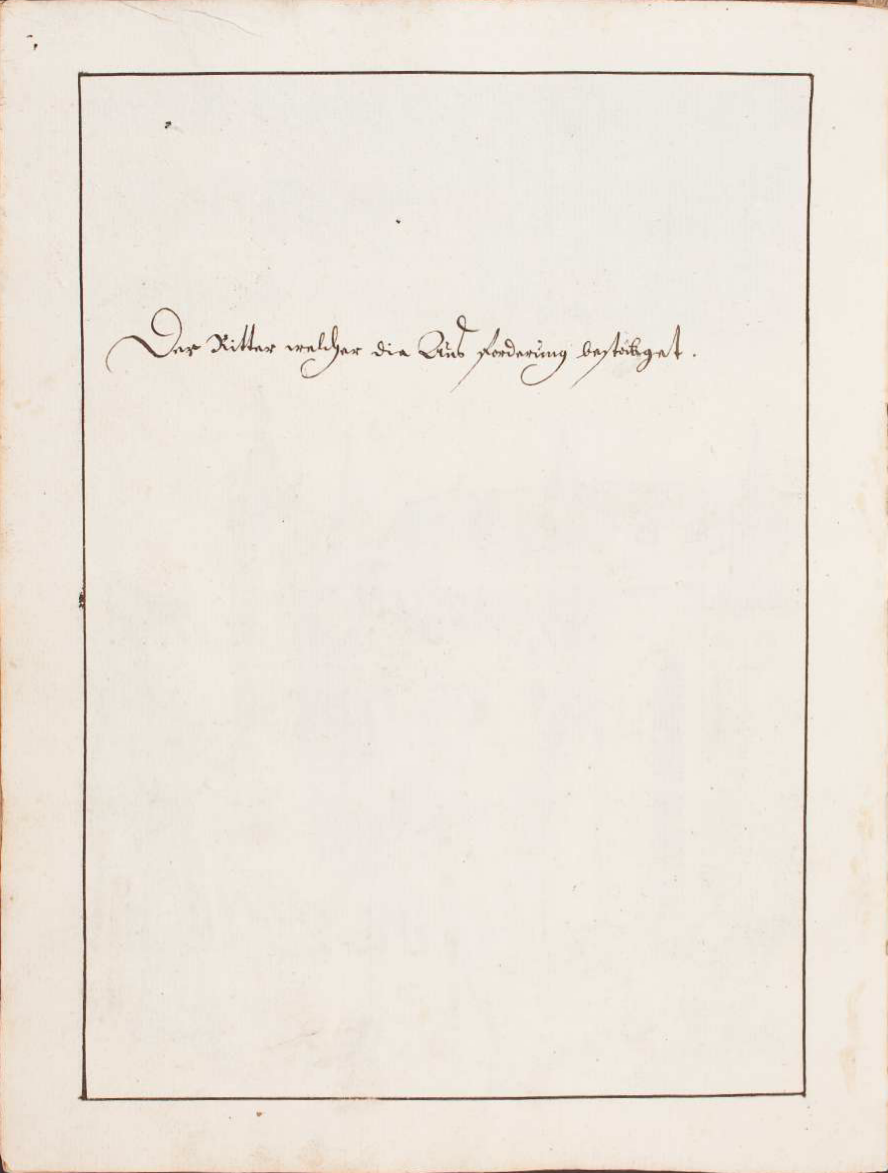 Der Ritter welcher die Aus forderung bestätiget.